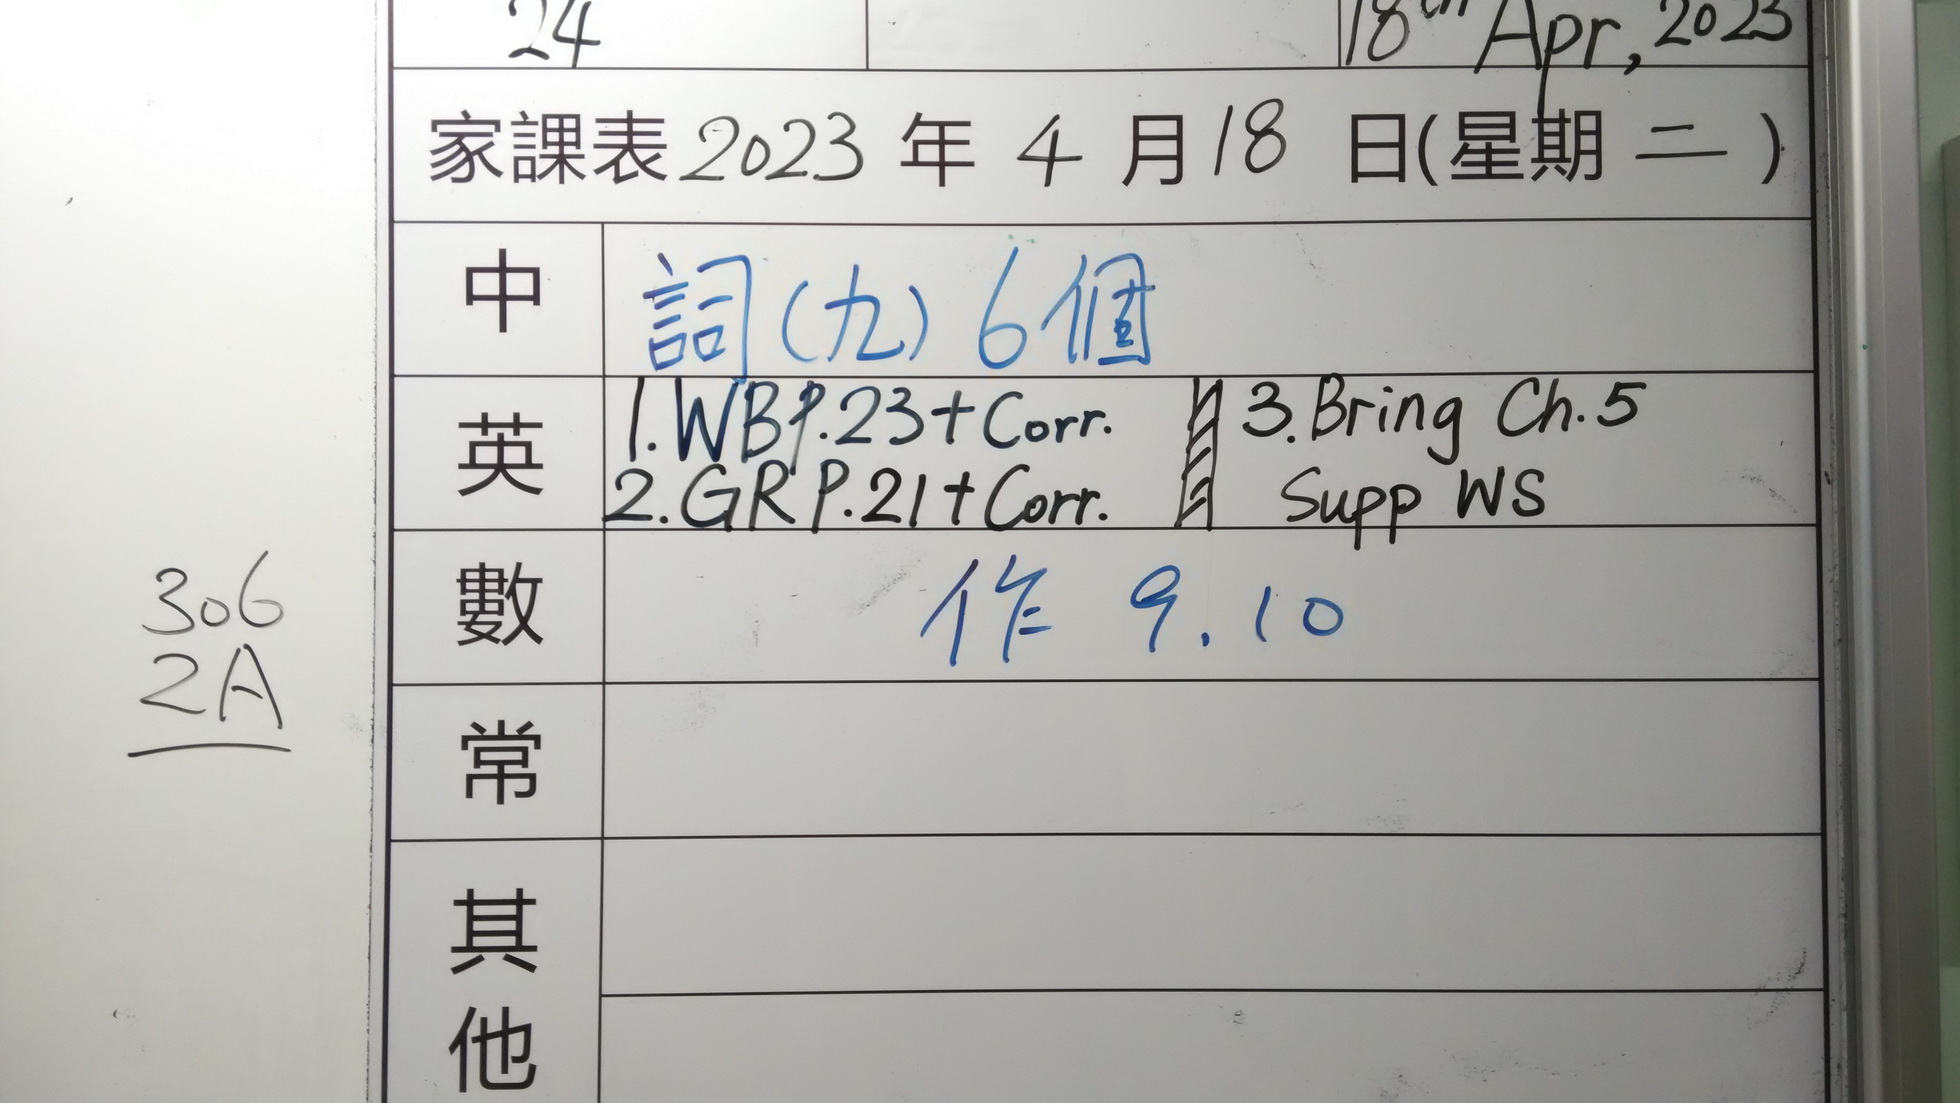 24
18th Apr, 2023
家課表 2023 年 4 月 18 日(星期二)
中
詞(九) 6個
英
1. WB P.23 + Corr.
2. GR P.21 + Corr.
3. Bring Ch.5
Supp WS
數
作 9. 10
常
其
他
306
2A